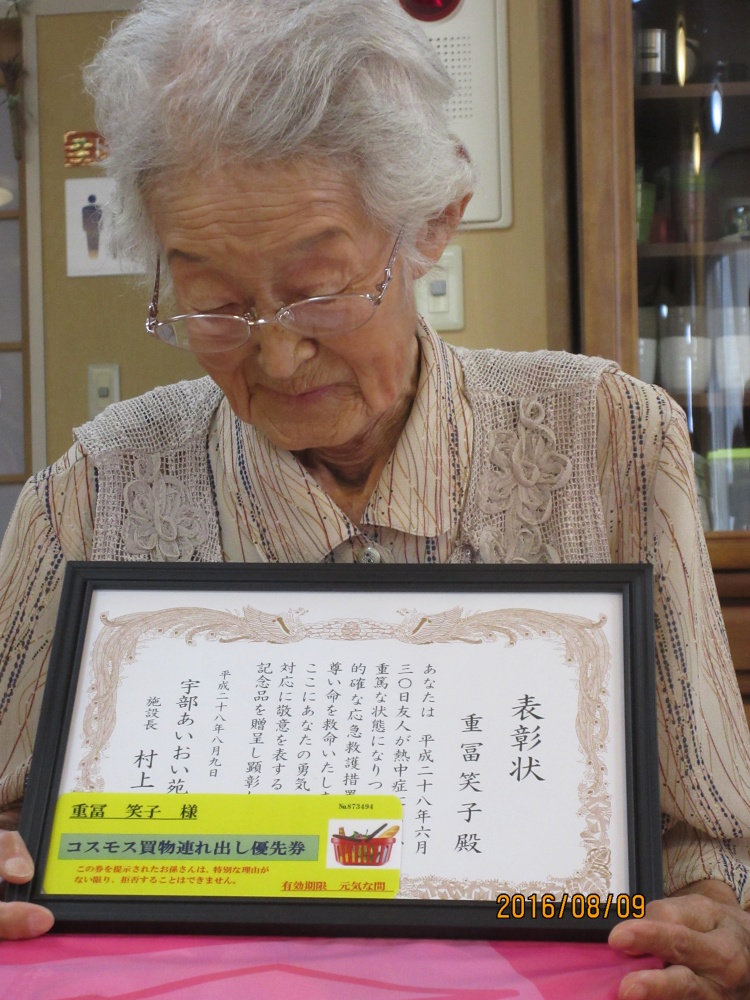 表彰状
重冨笑子殿
あなたは 平成二十八年六月
三〇日友人が熱中症に
重篤な状態になりつ
的確な応急救護措置
尊い命を救命いたしま
ここにあなたの勇気
対応に敬意を表する
記念品を贈呈し顕彰し
平成二十八年八月九日
宇部あいおい苑
施設長 村上
重冨 笑子 様
No.873494
コスモス買物連れ出し優先券
この券を提示されたお孫さんは、特別な理由が
ない限り、拒否することはできません。
有効期限 元気な間
2016/08/09